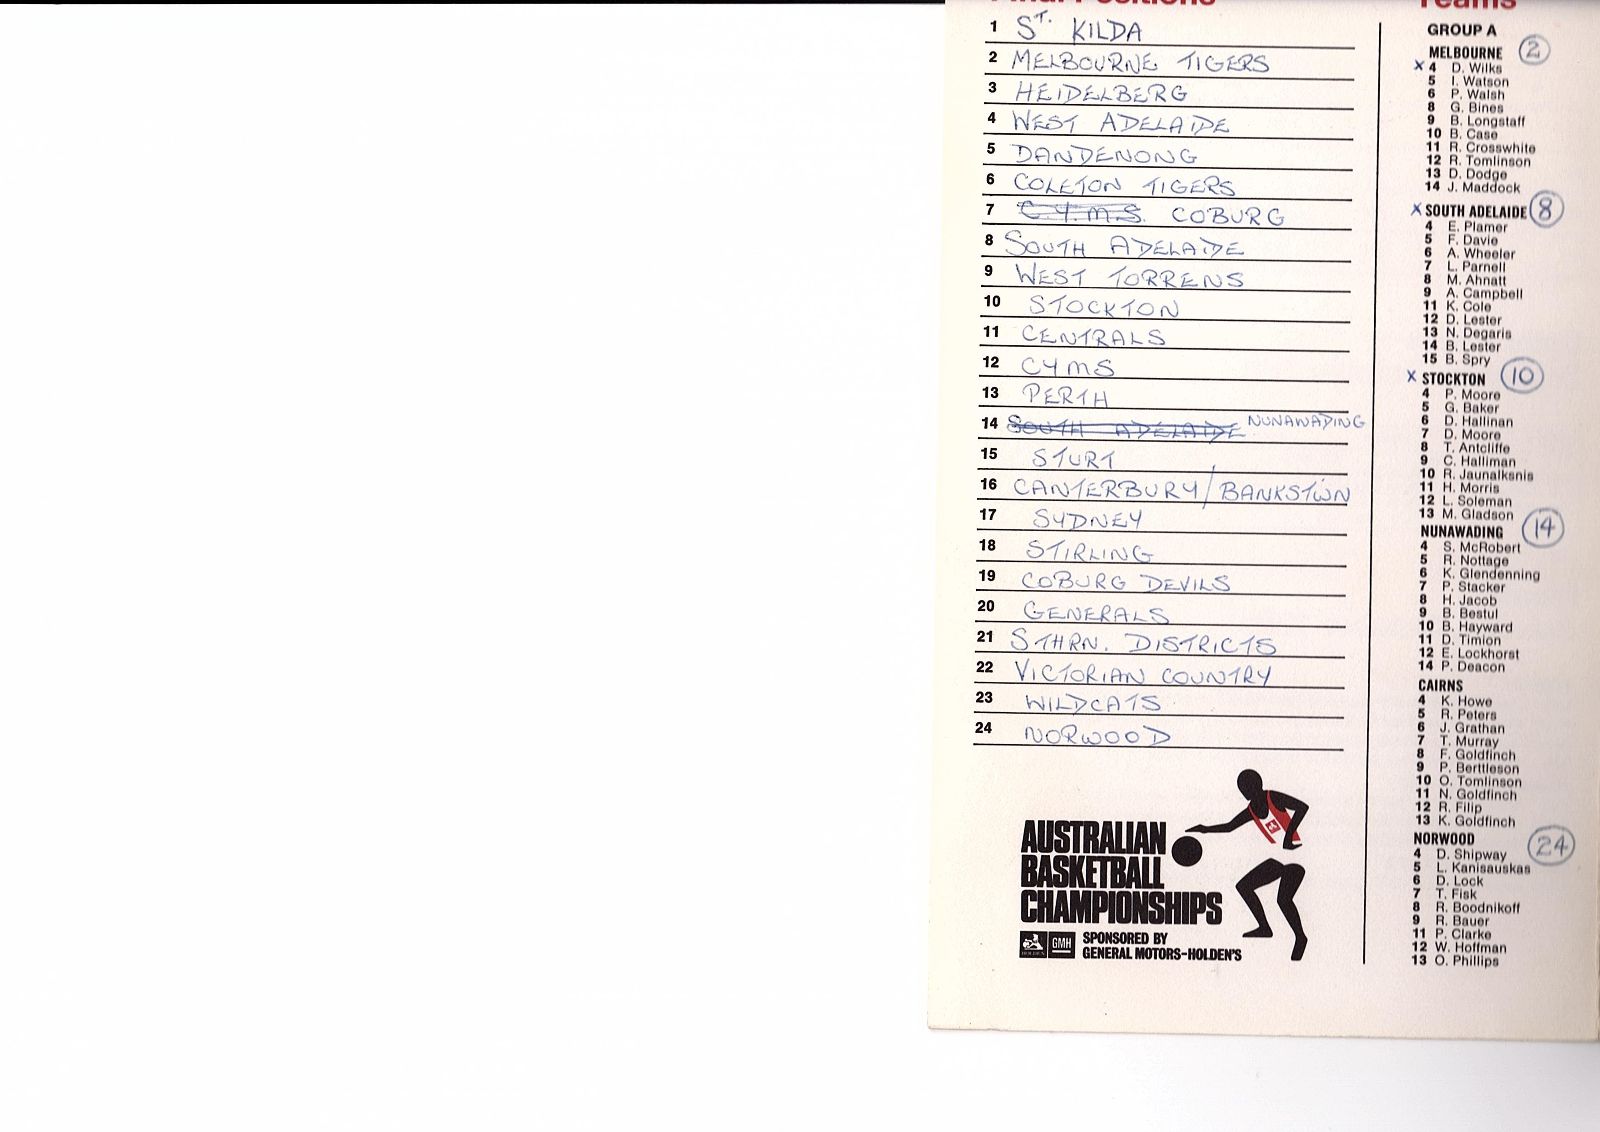 Final Positions
1 ST. KILDA
2 MELBOURNE TIGERS
3 HEIDELBERG
4 WEST ADELAIDE
5 DANDENONG
6 COLETON TIGERS
7 C.Y.M.S. COBURG
8 SOUTH ADELAIDE
9 WEST TORRENS
10 STOCKTON
11 CENTRALS
12 CYMS
13 PERTH
14 SOUTH ADELAIDE NUNAWADING
15 STURT
16 CANTERBURY/BANKSTOWN
17 SYDNEY
18 STIRLING
19 COBURG DEVILS
20 GENERALS
21 STHRN. DISTRICTS
22 VICTORIAN COUNTRY
23 WILDCATS
24 NORWOOD
AUSTRALIAN
BASKETBALL
CHAMPIONSHIPS
GMH
SPONSORED BY
GENERAL MOTORS-HOLDEN'S
Teams
GROUP A
MELBOURNE 2
x 4 D. Wilks
5 I. Watson
6 P. Walsh
8 G. Bines
9 B. Longstaff
10 B. Case
11 R. Crosswhite
12 R. Tomlinson
13 D. Dodge
14 J. Maddock
x SOUTH ADELAIDE 8
4 E. Plamer
5 F. Davie
6 A. Wheeler
7 L. Parnell
8 M. Ahnatt
9 A. Campbell
11 K. Cole
12 D. Lester
13 N. Degaris
14 B. Lester
15 B. Spry
x STOCKTON 10
4 P. Moore
5 G. Baker
6 D. Hallinan
7 D. Moore
8 T. Antcliffe
9 C. Halliman
10 R. Jaunalksnis
11 H. Morris
12 L. Soleman
13 M. Gladson
NUNAWADING 14
4 S. McRobert
5 R. Nottage
6 K. Glendenning
7 P. Stacker
8 H. Jacob
9 B. Bestul
10 B. Hayward
11 D. Timion
12 E. Lockhorst
14 P. Deacon
CAIRNS
4 K. Howe
5 R. Peters
6 J. Grathan
7 T. Murray
8 F. Goldfinch
9 P. Berttleson
10 O. Tomlinson
11 N. Goldfinch
12 R. Filip
13 K. Goldfinch
NORWOOD 24
4 D. Shipway
5 L. Kanisauskas
6 D. Lock
7 T. Fisk
8 R. Boodnikoff
9 R. Bauer
11 P. Clarke
12 W. Hoffman
13 O. Phillips